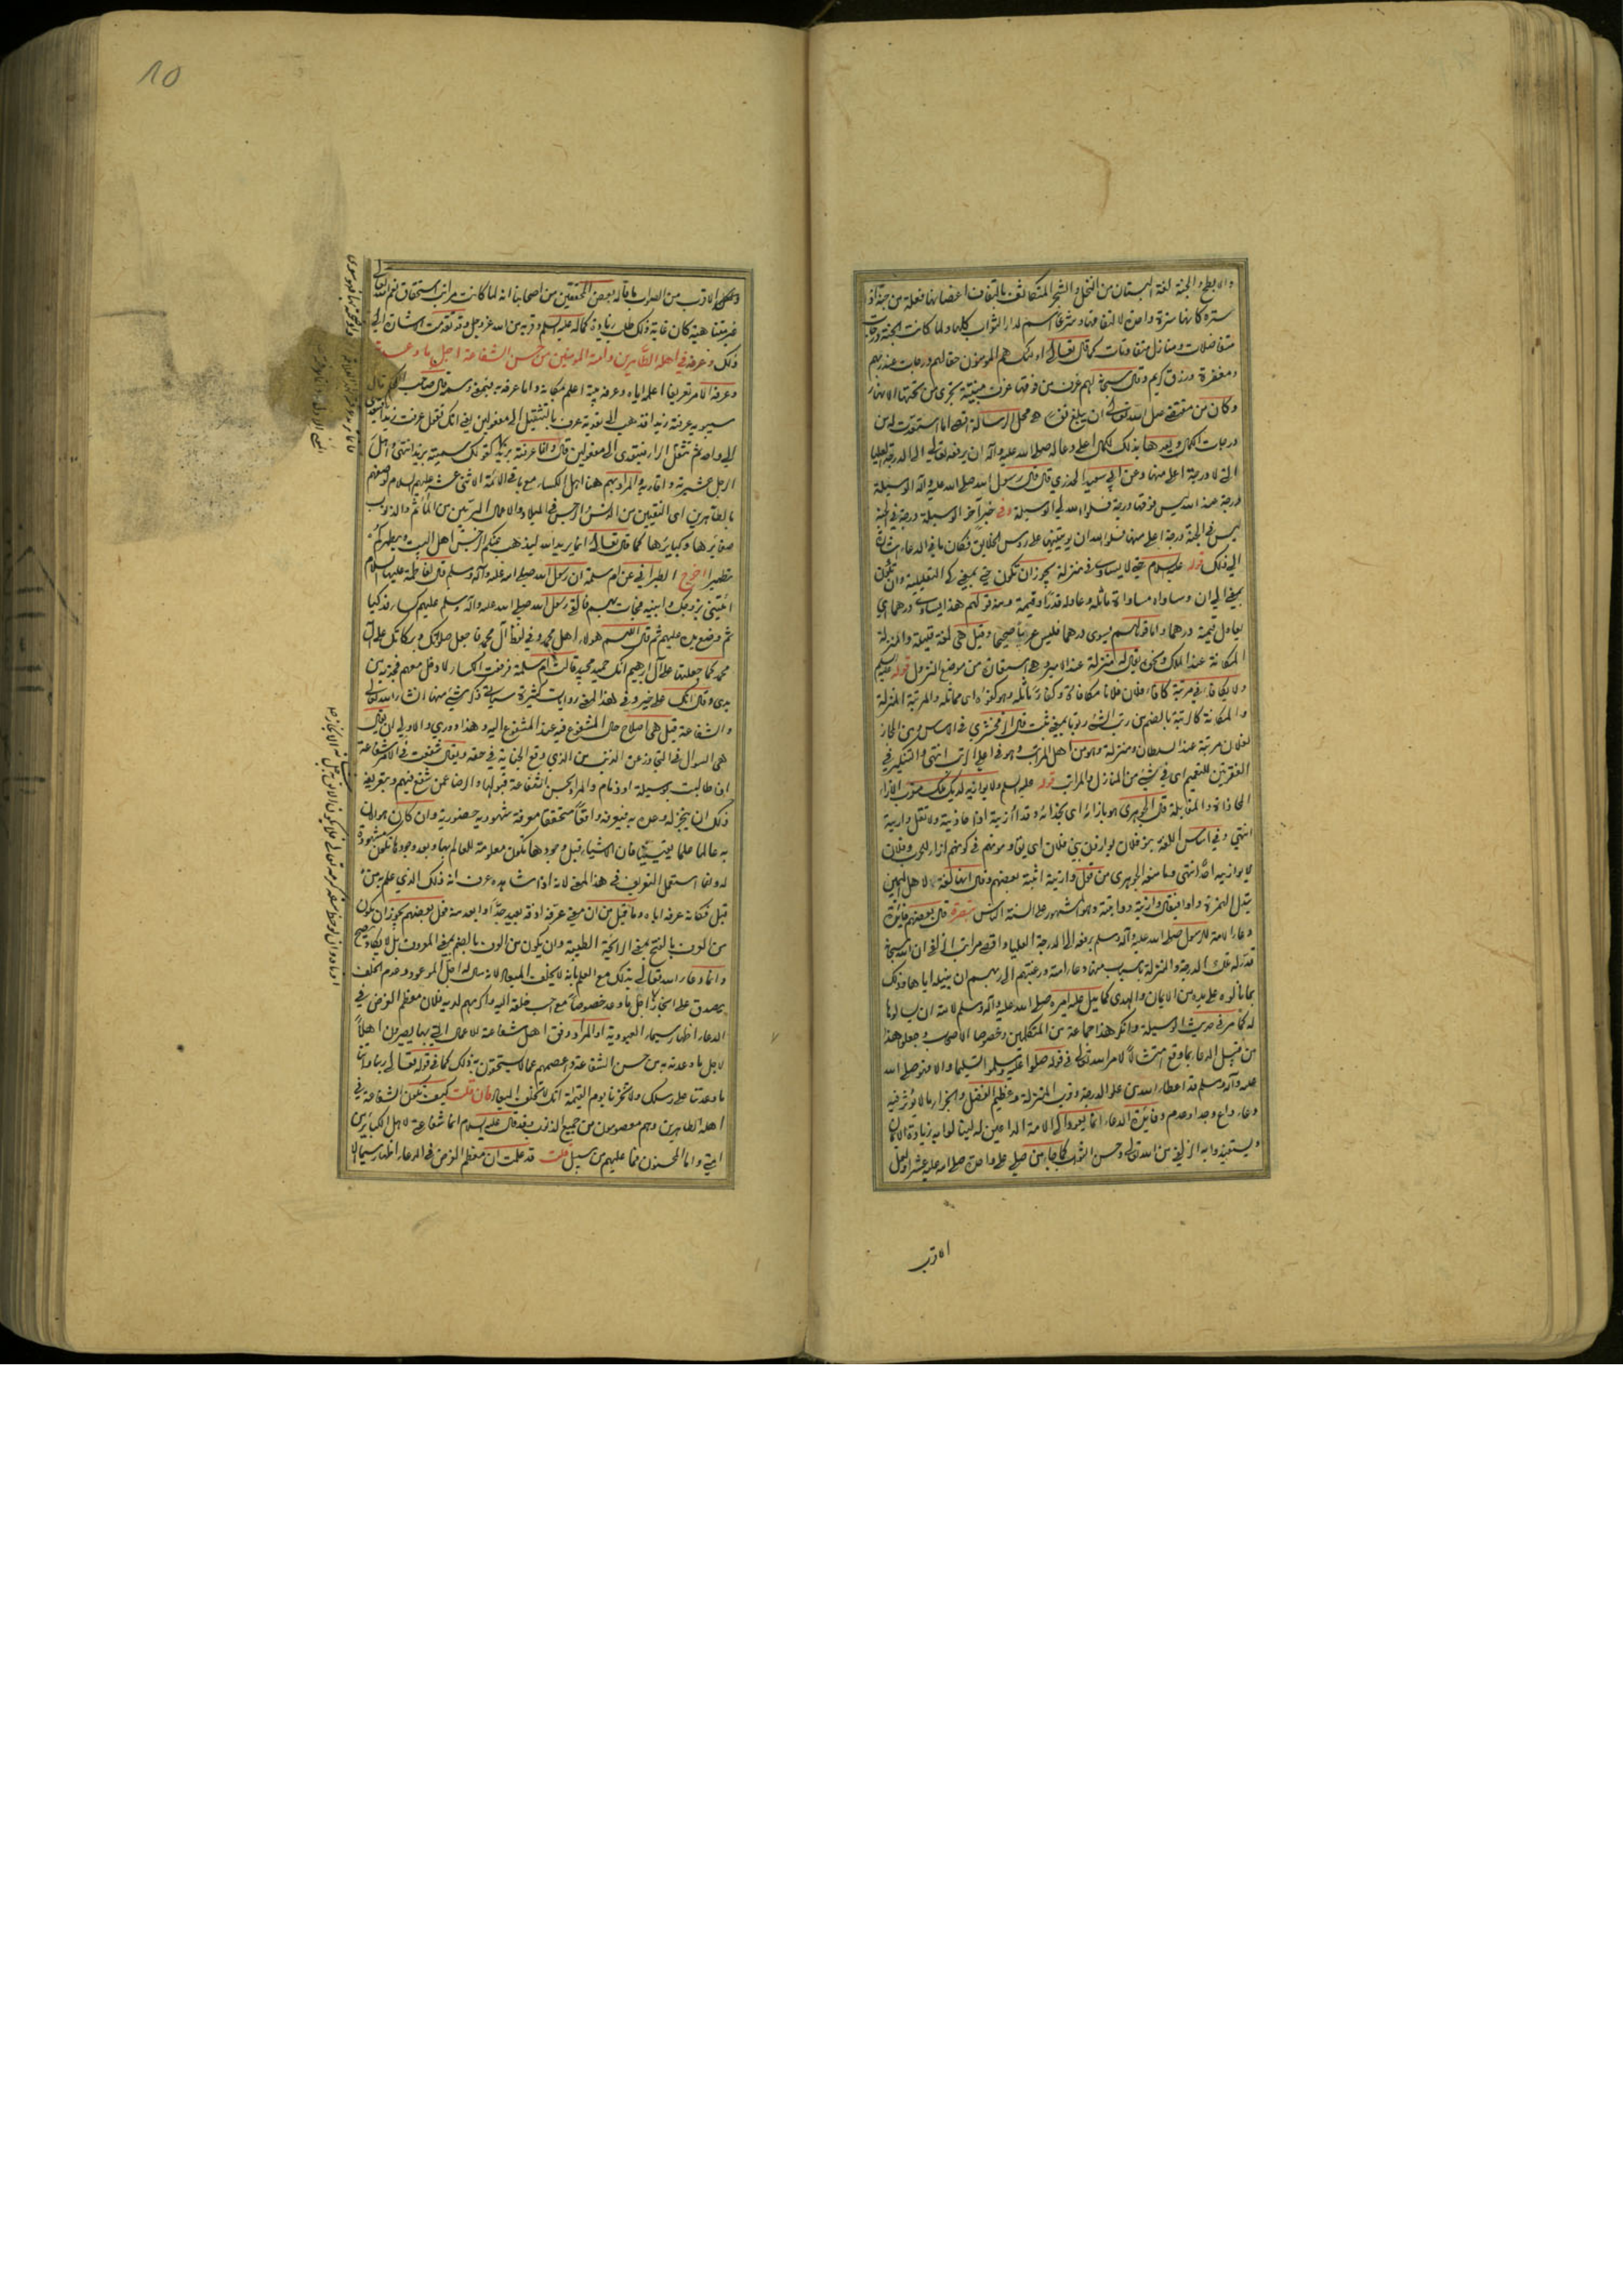 والابطح والجنة لغة البستان من النخل والشجر المتكاثف بالتفاف اغصانها فعلة من جنه اذا
ستره كانها سترة واحدة لالتفافها وشرعا اسم لدار الثواب كلها ولما كانت الجنة درجات
متفاضلات ومنازل متفاوتات كما قال تعالى اولئك هم المؤمنون حقا لهم درجات عند ربهم
ومغفرة ورزق كريم وقال سبحانه لهم غرف من فوقها غرف مبنية تجري من تحتها الانهار
وكان من مقتضى فضل الله تعالى ان يبلغ محل الرسالة
درجات الكمال وبعدها بذلك الكمال اعلى دعا له صلى الله عليه وآله ان يرفعه تعالى الى الدرجة العليا
التي لا درجة اعلى منها وعن ابي سعيد الخدري قال قال رسول الله صلى الله عليه وآله الوسيلة
درجة عند الله ليس فوقها درجة فسلوا الله لي الوسيلة وفي خبر آخر الوسيلة درجة في الجنة
ليس في الجنة درجة اعلى منها فسلوا الله ان يوتينيها على رؤس الخلايق فكان ما في الدعاء اشارة
الى ذلك قوله عليه السلام حتى لا يساوى في منزلة يجوز ان تكون حتى بمعنى كي التعليلية وان تكون
بمعنى الى ان وساواه مساواة ماثله وعادله قدرا وقيمة ومنه قولهم هذا يساوي درهما اي
يعادل قيمته درهما واما قولهم يسوى درهما فليس عربيا صحيحا وقيل هي لغة قليلة والمنزلة
المكانة عند الملك ونحوه يقال له منزلة عند الامير وهي استعارة من موضع النزول قوله عليه السلام
ولا يكافأ في مرتبة كافأ فلان فلانا مكافاة وكفاء ماثله وهو كفؤه اي مماثله والمرتبة المنزلة
والمكانة كالرتبة بالضم من رتب الشئ رتوبا بمعنى ثبت قال الزمخشري في الاساس ومن المجاز
لفلان مرتبة عند السلطان ومنزلة وهو من اهل المراتب وهو في اعلى الرتب انتهى والتنكير في
الفقرتين للتعميم اي في شئ من المنازل والمراتب قوله عليه السلم ولا يوازيه لديك ملك مقرب الازاء
المحاذاة والمقابلة قال الجوهري هو بازائه اي بحذائه وقد آزيته اذا حاذيته ولا تقل وازيته
انتهى وفي اساس اللغة بنو فلان يوازون بني فلان اي يقاومونهم في كونهم ازاء للحرب وفلان
لا يوازيه احد انتهى وما منعه الجوهري من قول وازيته اثبته بعضهم وقال انها لغة لاهل اليمن
بتبدل الهمزة واوا فيقال وازيته وواخيته وهو المشهور على السنة الناس تبصرة قال بعضهم فائدة
دعاء الامة للرسول صلى الله عليه وآله وسلم برفعه الى الدرجة العليا واقصى مراتب الزلفى ان الله سبحانه
قدر له تلك الدرجة والمنزلة باسباب منها دعاء امته ورغبتهم الى ربهم ان ينيله اياها وذلك
بما نالوه على يده من الايمان والهدى كما يدل عليه امره صلى الله عليه وآله وسلم لامته ان يسالوها
له كما مر في حديث الوسيلة وانكر هذا جماعة من المتكلمين وخصوصا الاصحاب وجعلوا هذا
من قبيل الدعاء بما وقع امتثالا لامر الله تعالى في قوله صلوا عليه وسلموا تسليما والا فهو صلى الله
عليه وآله وسلم قد اعطاه الله من علو الدرجة وقرب المنزلة وعظيم الفضل والجزاء ما لا يؤثر فيه
دعاء داع وجدا وعدم وفائدة الدعاء انما يعود الى الامة الداعين له لينالوا به زيادة الايمان
ويستفيدوا به الزلفى من الله تعالى وحسن الثواب كما جاء من صلى علي واحدة صلى الله عليه عشرا ولعل
الاقرب
الاقرب من الصواب ما قاله بعض المحققين من اصحابنا انه لما كانت مراتب استحقاق نعم الله تعالى
غير متناهية كان غاية ذلك طلب زيادة كماله عليه السلم وقربه من الله عز وجل وقد تقدمت الاشارة الى
ذلك وعرفه في اهله الطاهرين وامته المؤمنين من حسن الشفاعة اجل ما وعدته
وعرفه الامر تعريفا اعلمه اياه وعرفه بيته اعلمه بمكانه واما عرفه به فبمعنى وسمه قال صاحب المحكم قال
سيبويه عرفته زيدا فذهب الى تعدية عرف بالتثقيل الى مفعولين يعني انك تقول عرفت زيدا فيتعدى
الى واحد ثم تثقل الراء فيتعدى الى مفعولين قال واما عرفته بزيد كقولك سميته بزيد انتهى واهل
الرجل عشيرته واقاربه والمراد بهم هنا اهل الكساء مع باقي الائمة الاثني عشر عليهم السلام وصفهم
بالطاهرين اى النقيين من الدنس والرجس في الميلاد والاعمال المبرئين من المآثم والذنوب
صغايرها وكبايرها كما قال تعالى انما يريد الله ليذهب عنكم الرجس اهل البيت ويطهركم
تطهيرا اخرج الطبراني عن ام سلمة ان رسول الله صلى الله عليه وآله وسلم قال لفاطمة عليها السلام
ائتيني بزوجك وابنيه فجاءت بهم فالقى رسول الله صلى الله عليه وآله وسلم عليهم كساء فدكيا
ثم وضع يده عليهم ثم قال اللهم هؤلاء اهل محمد وفي لفظ آل محمد فاجعل صلواتك وبركاتك على آل
محمد كما جعلتها على آل ابرهيم انك حميد مجيد قالت ام سلمة فرفعت الكساء لادخل معهم فجذبه من
يدي وقال انك على خير وفي هذا المعنى روايات كثيرة سيأتي ذكر شئ منها انشاء الله تعالى
والشفاعة قيل هي اصلاح حال المشفوع فيه عند المشفوع اليه وهذا دوري والاولى ان يقال
هي السؤال في التجاوز عن الذنب من الذي وقع الجناية في حقه ويقال شفعت في الامر شفاعة
اذا طالبت بوسيلة او ذمام والمراد بحسن الشفاعة قبولها والرضا عمن شفع فيهم وتعريفه
ذلك ان ينجز له وعده به فيعرفه واقعا متحققا معرفة شهودية حضورية وان كان هو الان
به عالما علما يقينيا فان الاشياء قبل وجودها تكون معلومة للعالم بها وبعد وجودها تكون مشهودة
له وانما استعمل التعريف في هذا المعنى لانه اذا شاهده عرف انه ذلك الذي علم به من
قبل فكانه عرفه اياه وما قيل من ان معنى عرفه اذقه بعيد جدا وابعد منه قول بعضهم يجوز ان يكون
من العرف بالفتح بمعنى الرائحة الطيبة وان يكون من العرف بالضم بمعنى المعروف بل لا يكاد يصح
وانما دعاء الله تعالى بذلك مع العلم بانه لا يخلف الميعاد لانه سال له اجل الموعود وعدم الخلف
يصدق على انجاز اجل ما وعد خصوصا مع احب خلقه اليه واكرمهم لديه فلان معظم الغرض في
الدعاء اظهار سيماء العبودية او المراد وفق اهل شفاعة الاعمال التي بها يصيرون اهلا
لاجل ما وعدته به من حسن الشفاعة واعصمهم عما لا يستحقون به ذلك كما في قوله تعالى ربنا وآتنا
ما وعدتنا على رسلك ولا تخزنا يوم القيمة انك لا تخلف الميعاد فان قلت كيف تكون الشفاعة في
اهله الطاهرين وهم معصومون من جميع الذنوب وقد قال عليه السلام انما شفاعتي لاهل الكبائر من
امتي واما المحسنون فما عليهم من سبيل قلت قد علمت ان معظم الغرض في الدعاء اظهار سيماء